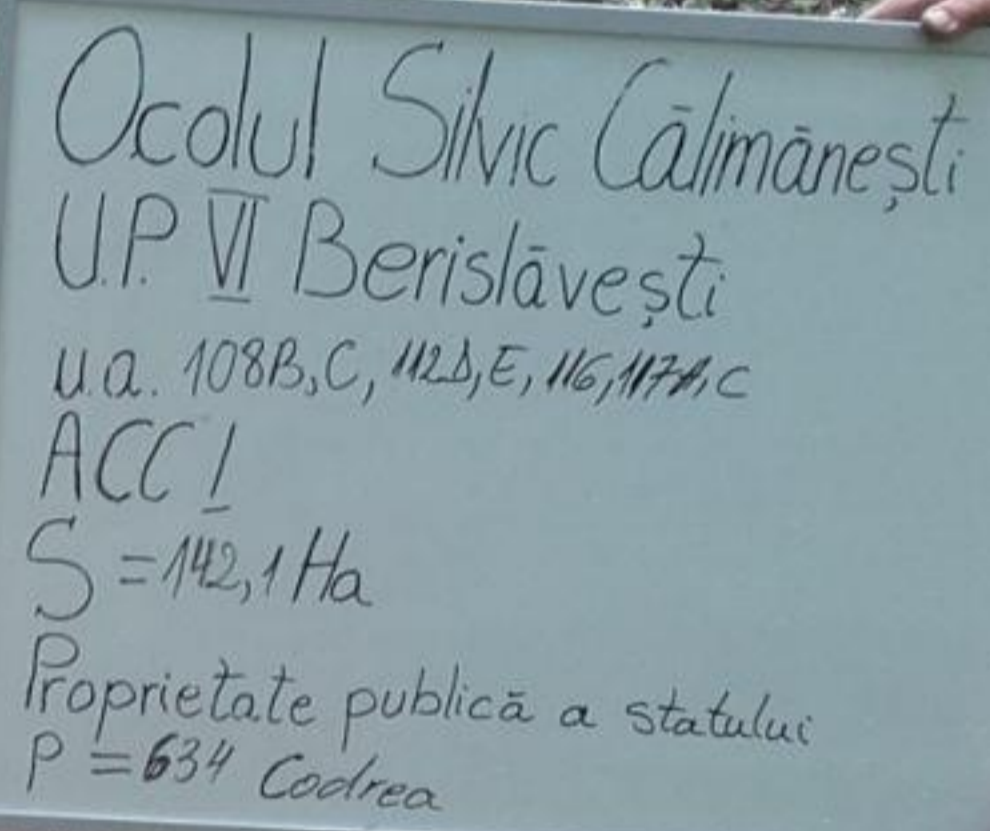 Ocolul Silvic Călimănești
U.P. VI Berislăvești
u.a. 108B,C, 112D,E, 116,117A,C
ACC I
S = 142,1 Ha
Proprietate publică a statului
P = 634 Codrea